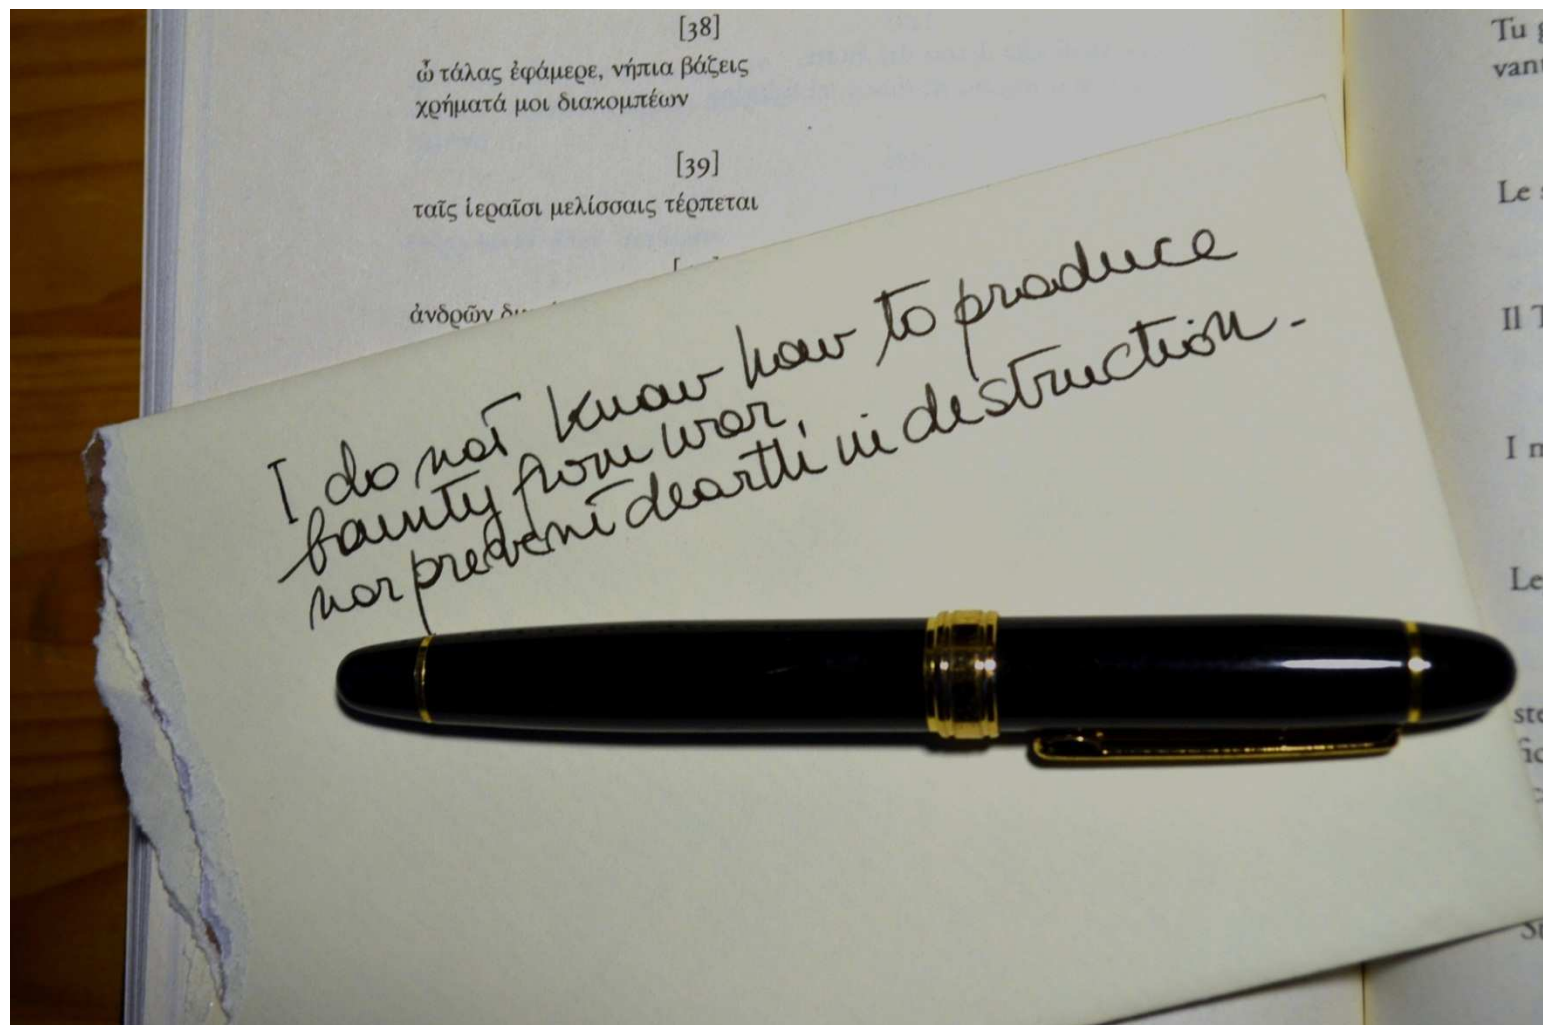 [38]
ὦ τάλας ἐφάμερε, νήπια βάζεις
χρήματά μοι διακομπέων
[39]
ταῖς ἱεραῖσι μελίσσαις τέρπεται
ἀνδρῶν
I do not know how to produce
bounty from war,
nor prevent dearth in destruction.
Tu
Le
Il
I
Le